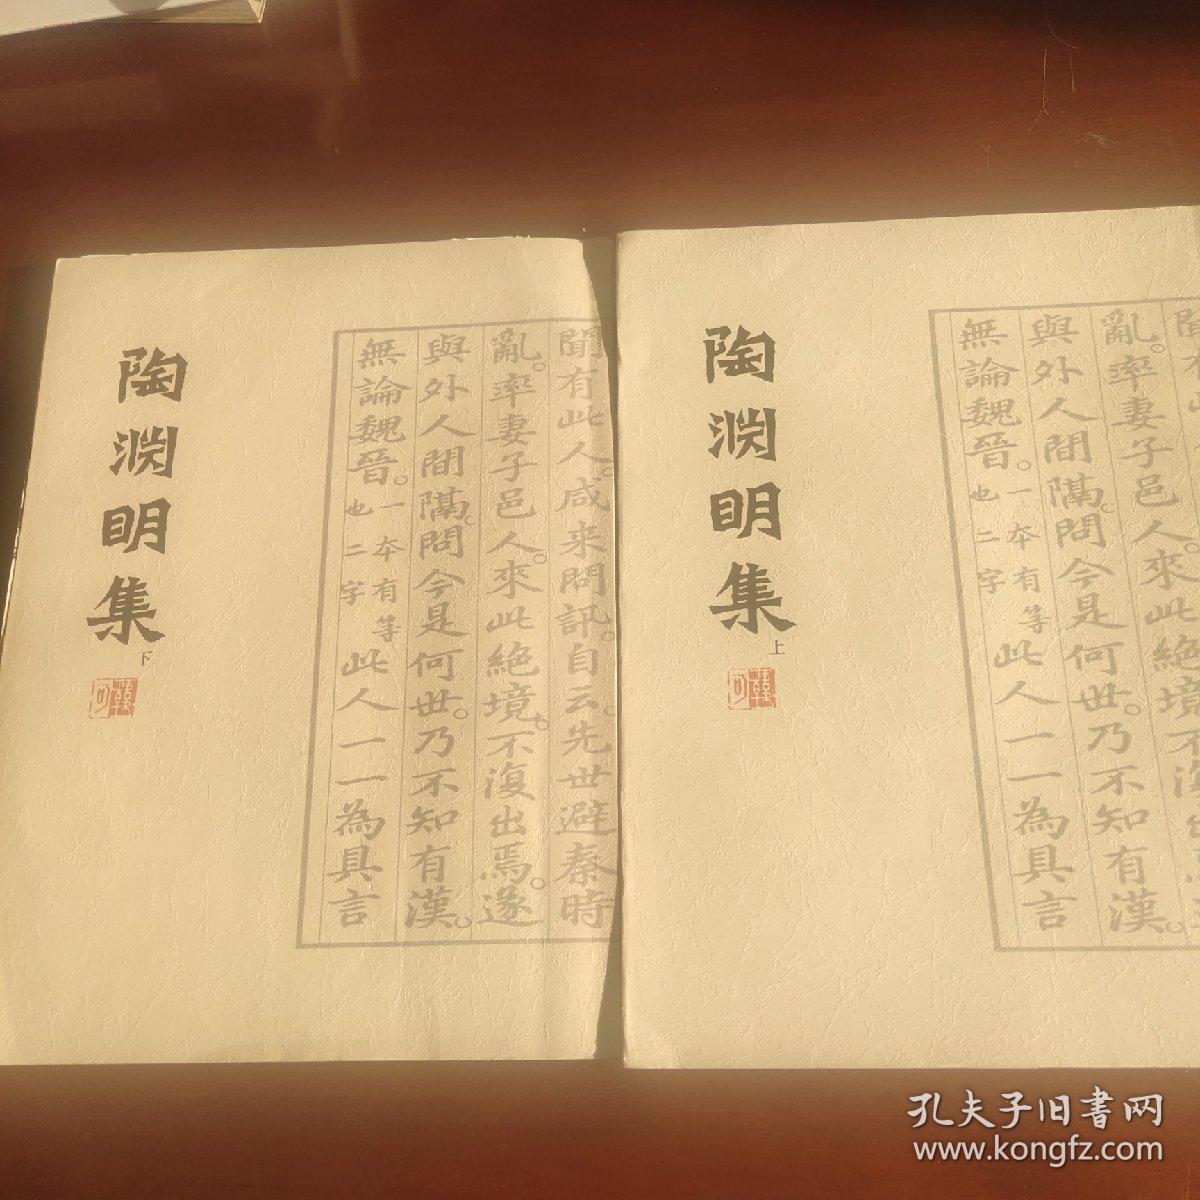 陶渊明集
上
聞有此
亂。率妻子邑人。來此絶境不復出
與外人間隔。問今是何世。乃不知有漢。
無論魏晉。一本有等也二字此人一一為具言
陶渊明集
下
聞有此人。咸来問訊。自云先世避秦時
亂。率妻子邑人。來此絶境。不復出焉。遂
與外人間隔。問今是何世。乃不知有漢。
無論魏晉。一本有等也二字此人一一為具言
孔夫子旧書网
www.kongfz.com